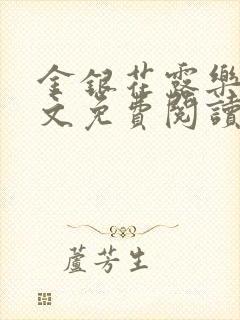 金銀花露樂
文免費閱讀
蘆芳生